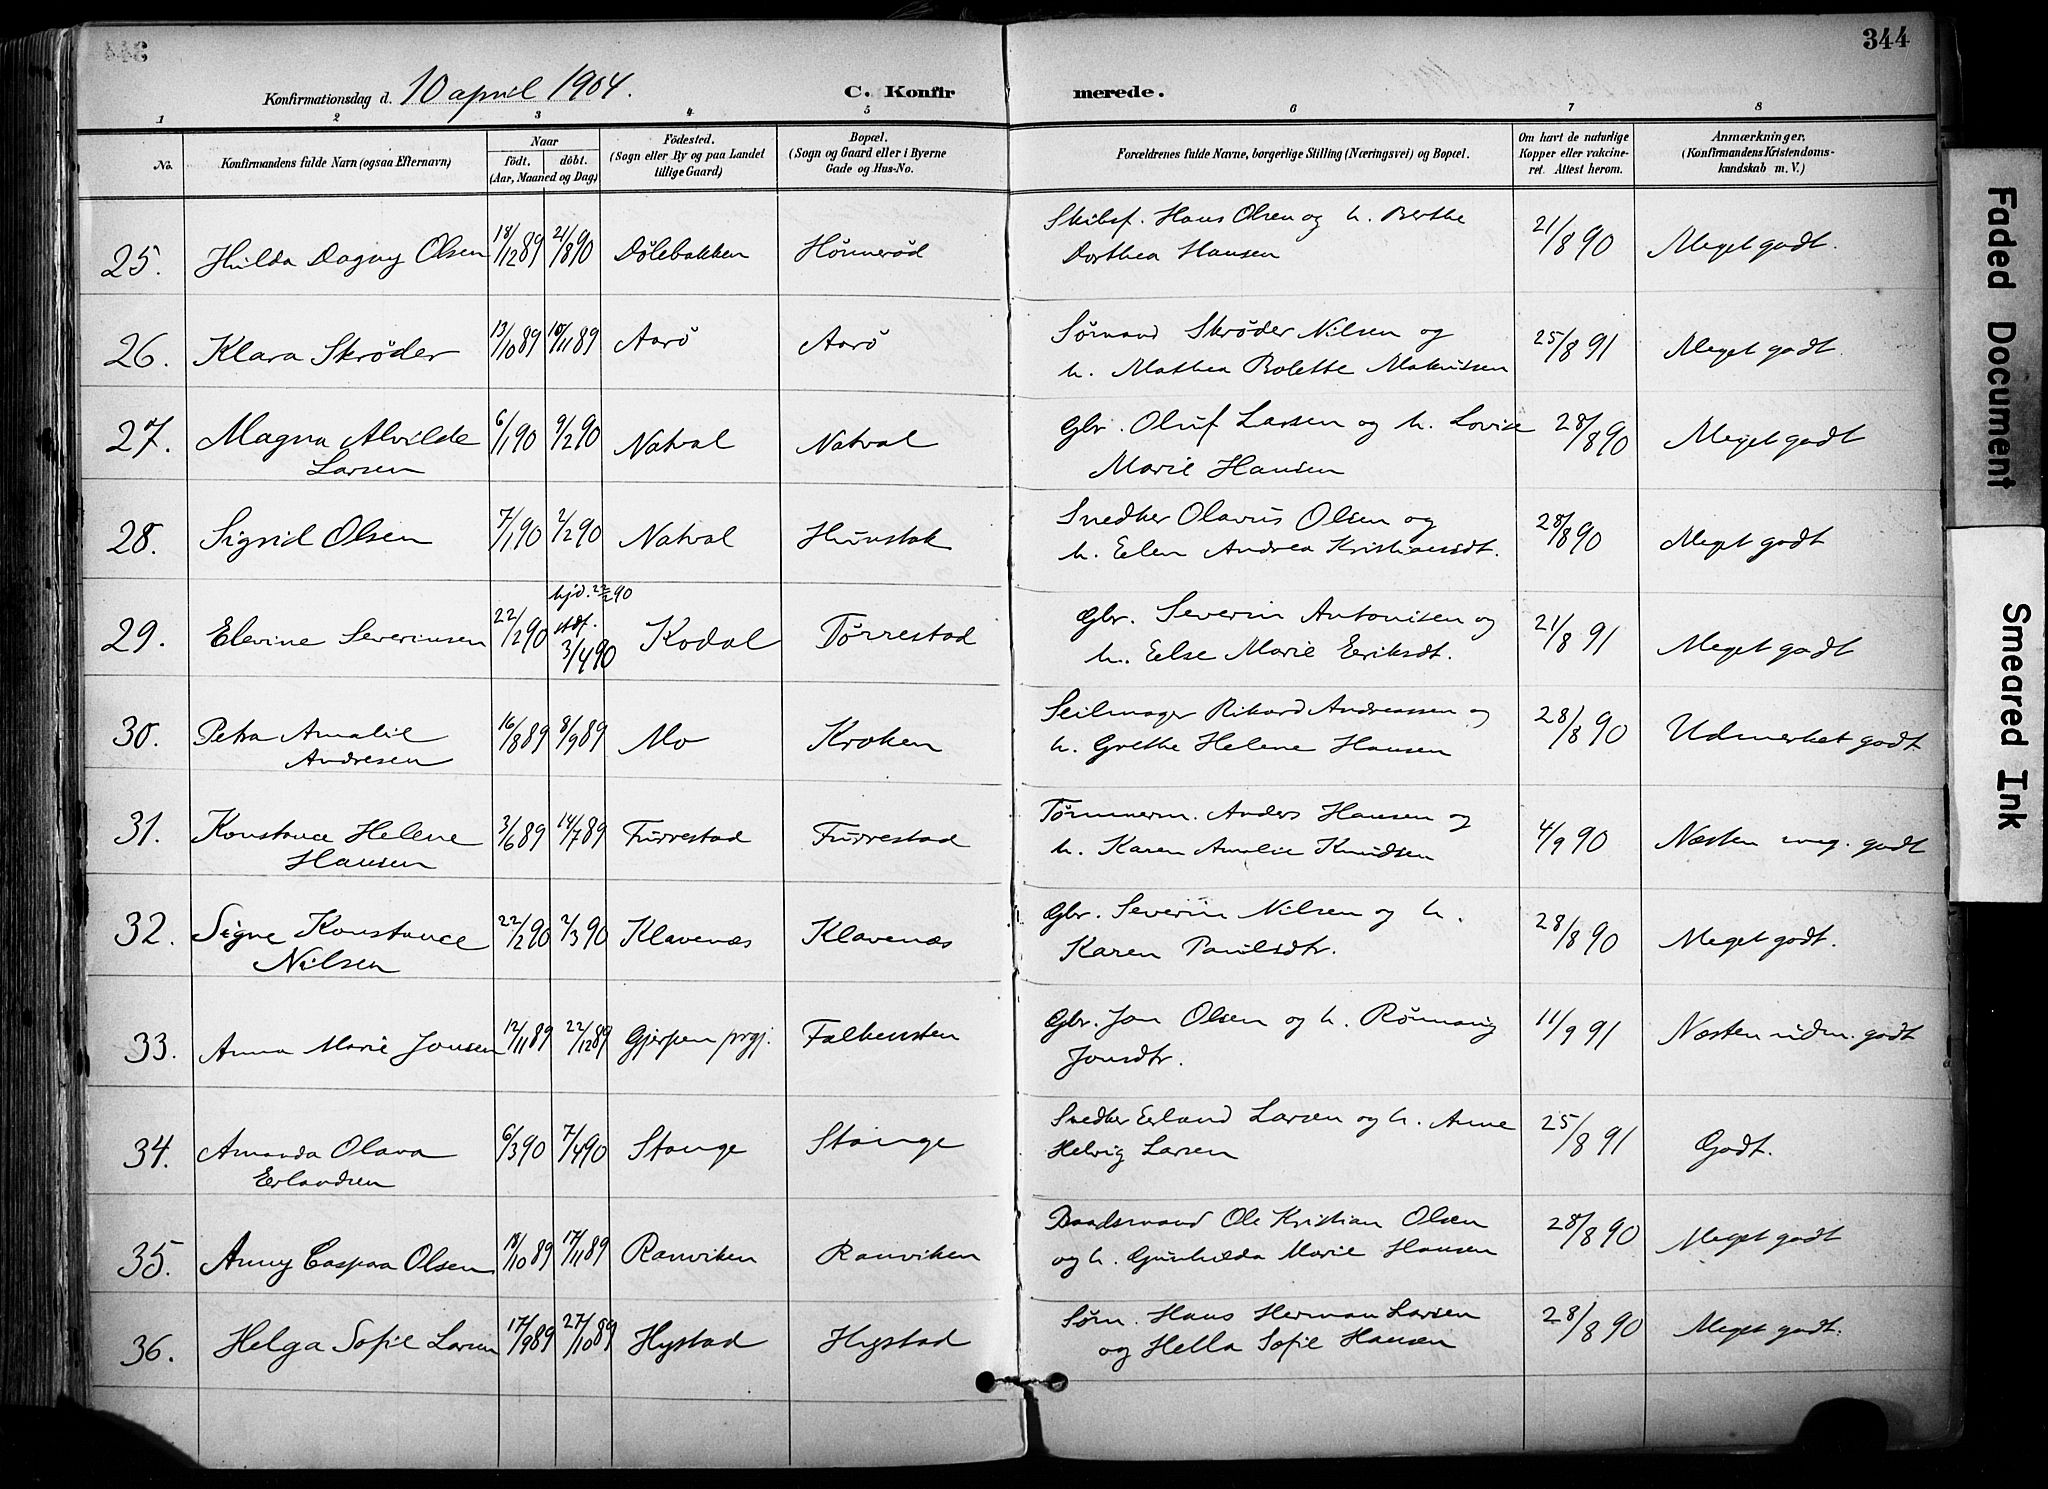 344
Konfirmationsdag d. 10 april 1904. C. Konfirmerede.
1 2 3 4 5 6 7 8
No. Konfirmandens fulde Navn (ogsaa Efternavn) Naar födt. döbt. (Aar, Maaned og Dag) Födested. (Sogn eller By og paa Landet tillige Gaard) Bopæl. (Sogn og Gaard eller i Byerne Gade og Hus-No. Forældrenes fulde Navne, borgerlige Stilling (Næringsvei) og Bopæl. Om havt de naturlige Kopper eller vakcineret. Attest herom. Anmærkninger. (Konfirmandens Kristendomskundskab m. V.)
25. Hilda Dagny Olsen 18/12 89 21/8 90 Dölebakken Hönneröd Skibsf. Hans Olsen og h. Berthe
Dorthea Hansen 21/8 90 Meget godt.
26. Klara Skröder 13/10 89 10/11 89 Aarö Aarö Sömand Skröder Nilsen og
h. Mathea Bolette Matrissen 25/8 91 Meget godt.
27. Magna Alvilde
Larsen 6/1 90 9/2 90 Natval Natval Gbr. Oluf Larsen og h. Lovise
Marie Hansen 28/8 90 Meget godt
28. Sigrid Olsen 7/1 90 2/2 90 Natval Hunstok Snedker Olavus Olsen og
h. Elen Andrea Kristiansdt. 28/8 90 Meget godt
29. Elevine Severinsen 22/2 90 hjd. 22/2 90
stdf.
3/4 90 Kodal Törrestad Gbr. Severin Antonisen og
h. Else Marie Eriksdt. 21/8 91 Meget godt
30. Petra Amalie
Andresen 16/8 89 8/9 89 Mo Kroken Seilmager Rikard Andreassen og
h. Grethe Helene Hansen 28/8 90 Udmerket godt
31. Konstance Helene
Hansen 3/6 89 14/7 89 Furrestad Furrestad Tömmerm. Anders Hansen og
h. Karen Amalie Knudsen 4/9 90 Næsten meg. godt
32. Signe Konstance
Nilsen 22/2 90 2/3 90 Klavenæs Klavenæs Gbr. Severin Nilsen og h.
Karen Paulsdtr. 28/8 90 Meget godt.
33. Anna Marie Jonsen 12/11 89 22/12 89 Gjerpen prgj. Falkensten Gbr. Jon Olsen og h. Rönnaug
Jonsdtr. 11/9 91 Næsten udm. godt
34. Amanda Olava
Erlandsen 6/3 90 7/4 90 Stange Stange Snedker Erland Larsen og h. Anne
Helvig Larsen 25/8 91 Godt.
35. Anny Caspara Olsen 18/10 89 17/11 89 Ranviken Ranviken Baadsmand Ole Kristian Olsen
og h. Gunhilda Marie Hansen 28/8 90 Meget godt
36. Helga Sofie Larsen 17/9 89 27/10 89 Hystad Hystad Söm. Hans Herman Larsen
og Hella Sofie Hansen 28/8 90 Meget godt.
Faded Document
Smeared Ink